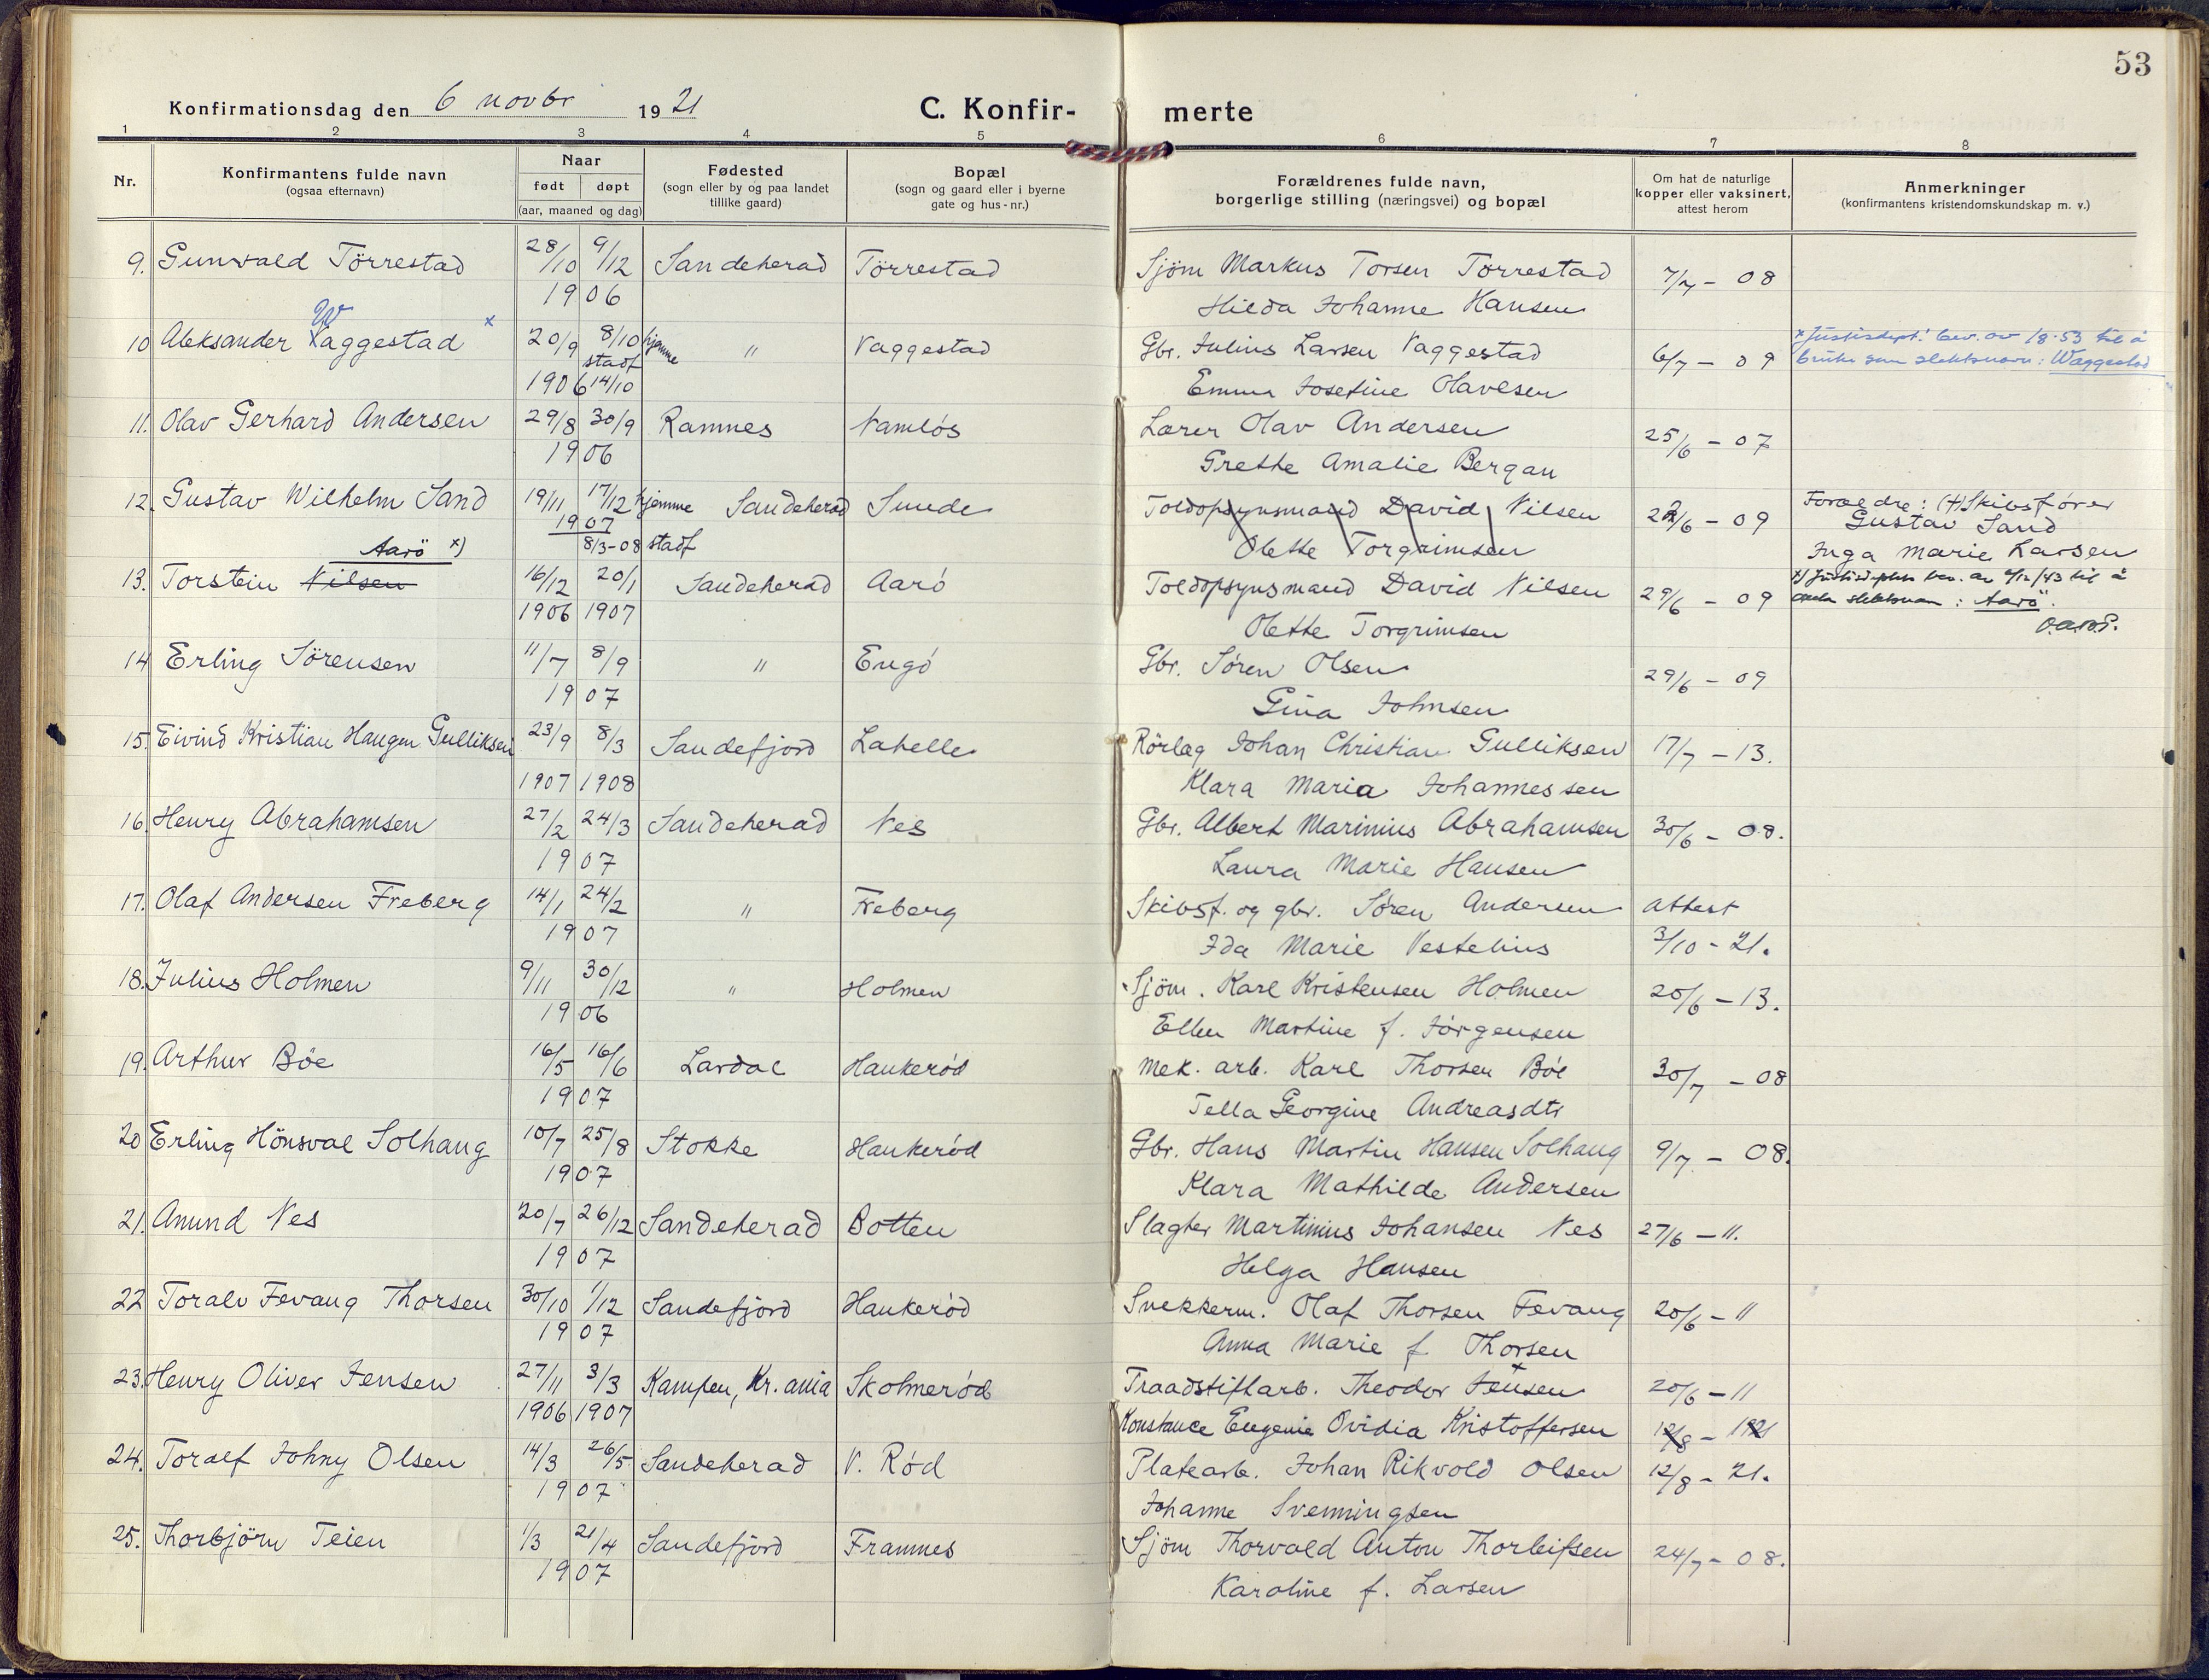 53
Konfirmationsdag den 6 novbr 1921
C. Konfir- merte
1 2 3 4 5 6 7 8
Nr.
Konfirmantens fulde navn
(ogsaa efternavn)
Naar
født døpt
(aar, maaned og dag)
Fødested
(sogn eller by og paa landet
tillike gaard)
Bopæl
(sogn og gaard eller i byerne
gate og hus-nr.)
Forældrenes fulde navn,
borgerlige stilling (næringsvei) og bopæl
Om hat de naturlige
kopper eller vaksinert,
attest herom
Anmerkninger
(konfirmantens kristendomskundskap m. v.)
9. Gunvald Törrestad 28/10 9/12 Sandeherad Törrestad Sjöm Markus Torsen Torrestad 7/7 - 08
1906 Hilda Johanne Hansen
W
10 Aleksander Vaggestad x 20/9 8/10 hjemme " Vaggestad Gbr. Julius Larsen Vaggestad 6/7 - 09 x Justisdept! bev. av 1/8-53 til å
stadf bruke som slektsnavn: Waggestad
1906 14/10 Emma Josefine Olavesen
11. Olav Gerhard Andersen 29/8 30/9 Ramnes Namløs Lærer Olav Andersen 25/6 - 07
1906 Grethe Amalie Bergan
12. Gustav Wilhelm Sand 19/11 17/12 hjemme Sandeherad Sunde Toldopsynsmand David Nilsen 22/6 - 09 Forældre: (†) Skibsfører
1907 Gustav Sand
8/3-08 stadf Olette Torgrimsen Inga Marie Larsen
Aarö x)
13. Torstein Nilsen 16/12 20/1 Sandeherad Aarö Toldopsynsmand David Nilsen 29/6 - 09 x) Justisdeptets bev. av 9/12/43 til å
1906 1907 Olette Torgrimsen slektsnavn: Aarö.
14 Erling Sörensen 11/7 8/9 " Engø Gbr. Søren Olsen 29/6 - 09
1907 Gina Johnsen
15. Eivind Kristian Haugen Gulliksen 23/9 8/3 Sandefjord Lahelle Rörlæg Johan Christian Gulliksen 17/7 - 13.
1907 1908 Klara Maria Johannessen
16. Henry Abrahamsen 27/2 24/3 Sandeherad Nes Gbr. Albert Marinius Abrahamsen 30/6 - 08.
1907 Laura Marie Hansen
17. Olaf Andersen Freberg 14/1 24/2 " Freberg Skibsf. og gbr. Søren Andersen attest
1907 Ida Marie Vestelius 3/10 - 21.
18. Julius Holmen 9/11 30/12 " Holmen Sjöm. Karl Kristensen Holmen 20/6 - 13.
1906 Ellen Martine f. Jørgensen
19. Arthur Böe 16/5 16/6 Lardal Haukerød Mek. arb. Karl Thorsen Böe 30/7 - 08
1907 Tella Georgine Andreasdtr
20 Erling Hönsval Solhaug 10/7 25/8 Stokke Haukerød Gbr. Hans Martin Hansen Solhaug 9/7 - 08.
1907 Klara Mathilde Andersen
21. Anund Nes 20/7 26/12 Sandeherad Botten Slagter Martinius Johansen Nes 27/6 - 11.
1907 Helga Hansen
22 Toralv Fevang Thorsen 30/10 1/12 Sandefjord Haukerød Snekkerm. Olaf Thorsen Fevang 20/6 - 11
1907 Anna Marie f. Thorsen
23. Henry Oliver Jensen 27/11 3/3 Kampen, Kr.ania Skolmerød Traadstiftarb. Theodor Jensen 20/6 - 11
1906 1907 Konstance Eugenie Ovidia Kristoffersen
24. Toralf Johny Olsen 14/3 26/5 Sandeherad V. Rød Platearb. Johan Rikvold Olsen 12/8 - 21.
1907 Johanne Svenningsen
25. Thorbjörn Teien 1/3 21/4 Sandefjord Framnes Sjöm Thorvald Anton Thorleifsen 24/7 - 08.
1907 Karoline f. Larsen